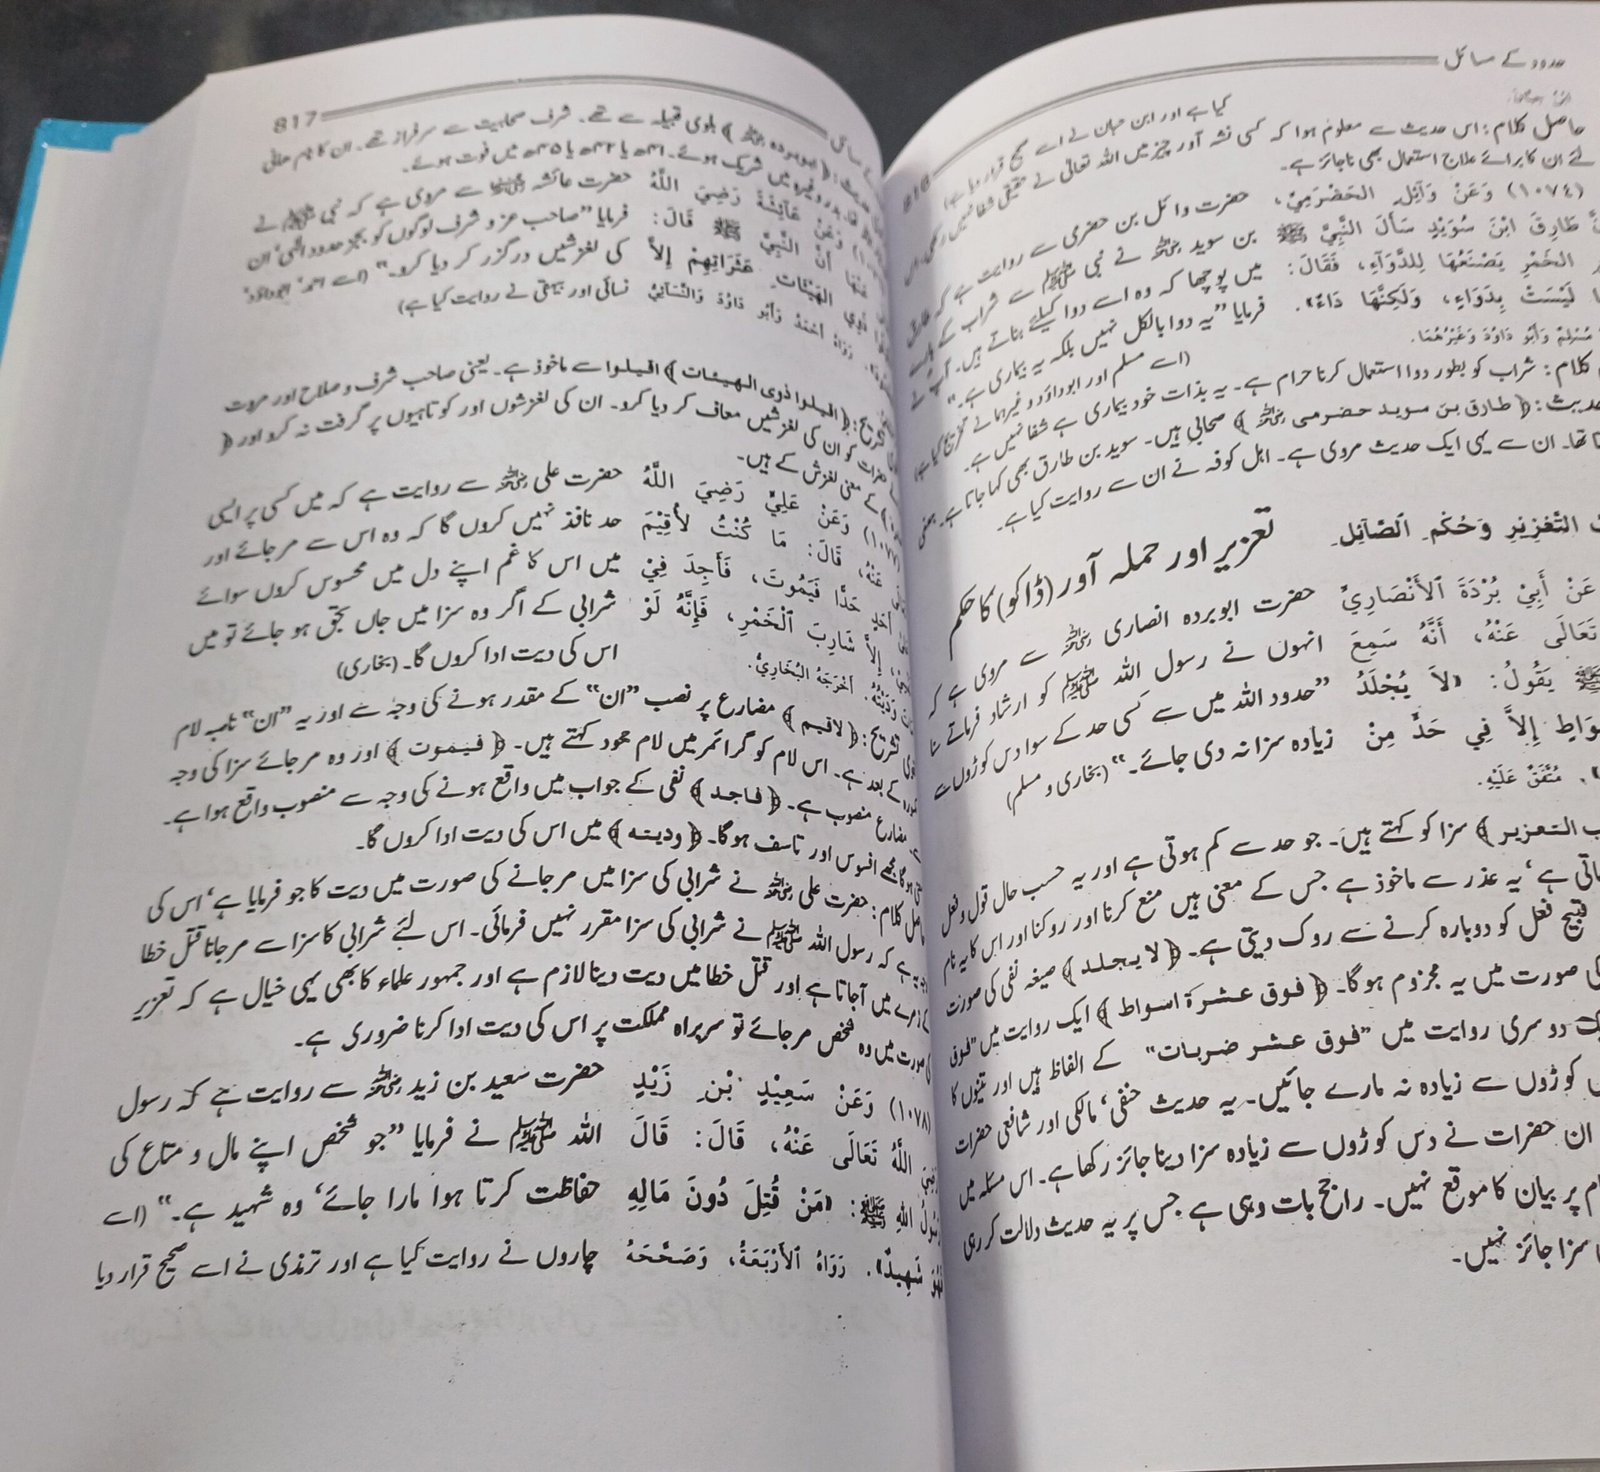 حدود کے مسائل
816
کیا ہے اور ابن حبان نے اسے صحیح قرار دیا ہے)
حاصل کلام: اس حدیث سے معلوم ہوا کہ کسی نشہ آور چیز میں اللہ تعالیٰ نے حقیقی شفا نہیں رکھی
لئے ان کا برائے علاج استعمال بھی ناجائز ہے۔
(١٠٧٤) وَعَنْ وَآئِلِ الحَضْرَمِيِّ،
طَارِقَ ابْنَ سُوَيْدٍ سَأَلَ النَّبِيَّ ﷺ
الخَمْرِ يَصْنَعُهَا لِلدَّوَآءِ، فَقَالَ:
لَيْسَتْ بِدَوَاءٍ، وَلَكِنَّهَا دَاءٌ».
مُسْلِمٌ وَأَبُو دَاوُدَ وَغَيْرُهُمَا.
حضرت وائل بن حضری سے روایت ہے کہ
بن سوید رضی اللہ عنہ نے نبی ﷺ سے شراب کے
میں پوچھا کہ وہ اسے دوا کیلئے بناتے ہیں۔ آپ نے
فرمایا ”یہ دوا بالکل نہیں بلکہ یہ بیماری ہے۔“
(اسے مسلم اور ابوداؤد وغیرہما نے
کلام: شراب کو بطور دوا استعمال کرنا حرام ہے۔ یہ بذات خود بیماری ہے شفا نہیں ہے۔
﴿ طارق بن سوید حضرمی رضی اللہ عنہ ﴾ صحابی ہیں۔ سوید بن طارق بھی کہا جاتا ہے۔ بعض
تھا۔ ان سے یہی ایک حدیث مروی ہے۔ اہل کوفہ نے ان سے روایت کیا ہے۔
التَّعْزِيرِ وَحُكْمِ الصَّآئِلِ
تعزیر اور حملہ آور (ڈاکو) کا حکم
عَنْ أَبِيْ بُرْدَةَ الأَنْصَارِيِّ
تَعَالَى عَنْهُ، أَنَّهُ سَمِعَ
ﷺ يَقُولُ: «لاَ يُجْلَدُ
إِلاَّ فِي حَدٍّ مِنْ
مُتَّفَقٌ عَلَيْهِ.
حضرت ابوبردہ انصاری رضی اللہ عنہ سے مروی ہے کہ
انہوں نے رسول اللہ ﷺ کو ارشاد فرماتے سنا
”حدود اللہ میں سے کسی حد کے سوا دس کوڑوں سے
زیادہ سزا نہ دی جائے۔“ (بخاری و مسلم)
التعزیر ﴾ سزا کو کہتے ہیں۔ جو حد سے کم ہوتی ہے اور یہ حسب حال قول و فعل
ہے، یہ عذر سے ماخوذ ہے جس کے معنی ہیں منع کرنا اور روکنا اور اس کا یہ نام
قبیح فعل کو دوبارہ کرنے سے روک دیتی ہے۔ ﴿ لا یجلد ﴾ صیغہ نفی کی صورت
کی صورت میں یہ مجزوم ہوگا۔ ﴿ فوق عشرة اسواط ﴾ ایک روایت میں ”فوق
دوسری روایت میں ”فوق عشر ضربات“ کے الفاظ ہیں اور تینوں کا
کوڑوں سے زیادہ نہ مارے جائیں۔ یہ حدیث حنفی، مالکی اور شافعی حضرات
ان حضرات نے دس کوڑوں سے زیادہ سزا دینا جائز رکھا ہے۔ اس مسئلہ میں
پر بیان کا موقع نہیں۔ راجح بات وہی ہے جس پر یہ حدیث دلالت کر رہی
سزا جائز نہیں۔
817
﴿ ابوبردہ رضی اللہ عنہ ﴾ بلوی قبیلہ سے تھے۔ شرف صحابیت سے سرفراز تھے۔ ان کا نام ہانی
بدر وغیرہ میں شریک ہوئے۔ ۴۱ھ یا ۴۲ھ یا ۴۵ھ میں فوت ہوئے۔
وَعَنْ عَآئِشَةَ رَضِيَ اللَّهُ
عَنْهَا أَنَّ النَّبِيَّ ﷺ قَالَ:
ذَوِي الهَيْئَاتِ عَثَرَاتِهِمْ إِلاَّ
رَوَاهُ أَحْمَدُ وَأَبُو دَاوُدَ وَالنَّسَآئِيُّ
حضرت عائشہ رضی اللہ عنہا سے مروی ہے کہ نبی ﷺ نے
فرمایا ”صاحب عز و شرف لوگوں کو بجز حدود الٰہی، ان
کی لغزشیں درگزر کر دیا کرو۔“ (اسے احمد، ابوداؤد،
نسائی اور بیہقی نے روایت کیا ہے)
تشریح: ﴿ اقیلوا ذوی الهیئات ﴾ اقیلوا سے ماخوذ ہے۔ یعنی صاحب شرف و صلاح اور مروت
حضرات کو ان کی لغزشیں معاف کر دیا کرو۔ ان کی لغزشوں اور کوتاہیوں پر گرفت نہ کرو اور ﴿
﴾ کے معنی لغزش کے ہیں۔
(١٠٧٧) وَعَنْ عَلِيٍّ رَضِيَ اللَّهُ
عَنْهُ، قَالَ: مَا كُنْتُ لأُقِيْمَ
أَحَدٍ حَدًّا فَيَمُوتَ، فَأَجِدَ فِيْ
إِلاَّ شَارِبَ الْخَمْرِ، فَإِنَّهُ لَوْ
وَدَيْتُهُ. أَخْرَجَهُ البُخَارِيُّ.
حضرت علی رضی اللہ عنہ سے روایت ہے کہ میں کسی پر ایسی
حد نافذ نہیں کروں گا کہ وہ اس سے مر جائے اور
میں اس کا غم اپنے دل میں محسوس کروں سوائے
شرابی کے اگر وہ سزا میں جاں بحق ہو جائے تو میں
اس کی دیت ادا کروں گا۔ (بخاری)
تشریح: ﴿ لاقیم ﴾ مضارع پر نصب ”ان“ کے مقدر ہونے کی وجہ سے اور یہ ”ان“ ناصبہ لام
کے بعد ہے۔ اس لام کو گرائمر میں لام جحود کہتے ہیں۔ ﴿ فیموت ﴾ اور وہ مر جائے سزا کی وجہ
مضارع منصوب ہے۔ ﴿ فاجد ﴾ نفی کے جواب میں واقع ہونے کی وجہ سے منصوب واقع ہوا ہے۔
ہوگا مجھے افسوس اور تاسف ہوگا۔ ﴿ ودیته ﴾ میں اس کی دیت ادا کروں گا۔
حاصل کلام: حضرت علی رضی اللہ عنہ نے شرابی کی سزا میں مر جانے کی صورت میں دیت کا جو فرمایا ہے، اس کی
یہ ہے کہ رسول اللہ ﷺ نے شرابی کی سزا مقرر نہیں فرمائی۔ اس لئے شرابی کا سزا سے مر جانا قتل خطا
کے زمرے میں آجاتا ہے اور قتل خطا میں دیت دینا لازم ہے اور جمہور علماء کا بھی یہی خیال ہے کہ تعزیر
کی صورت میں وہ شخص مر جائے تو سربراہ مملکت پر اس کی دیت ادا کرنا ضروری ہے۔
(١٠٧٨) وَعَنْ سَعِيْدِ بْنِ زَيْدٍ
رَضِيَ اللَّهُ تَعَالَى عَنْهُ، قَالَ: قَالَ
رَسُولُ اللهِ ﷺ: «مَنْ قُتِلَ دُونَ مَالِهِ
فَهُوَ شَهِيدٌ». رَوَاهُ الأَرْبَعَةُ، وَصَحَّحَهُ
حضرت سعید بن زید رضی اللہ عنہ سے روایت ہے کہ رسول
اللہ ﷺ نے فرمایا ”جو شخص اپنے مال و متاع کی
حفاظت کرتا ہوا مارا جائے، وہ شہید ہے۔“ (اسے
چاروں نے روایت کیا ہے اور ترمذی نے اسے صحیح قرار دیا